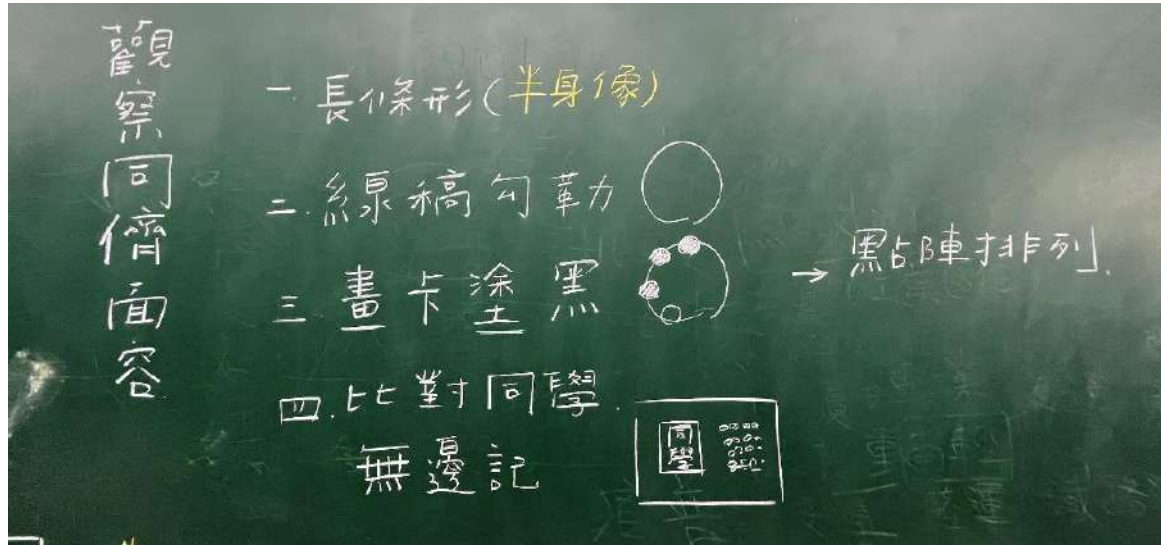 觀察同儕面容
一.長條形(半身像)
二.線稿勾勒
三.畫卡塗黑 → 點陣排列.
四.比對同學.
無邊記
同學